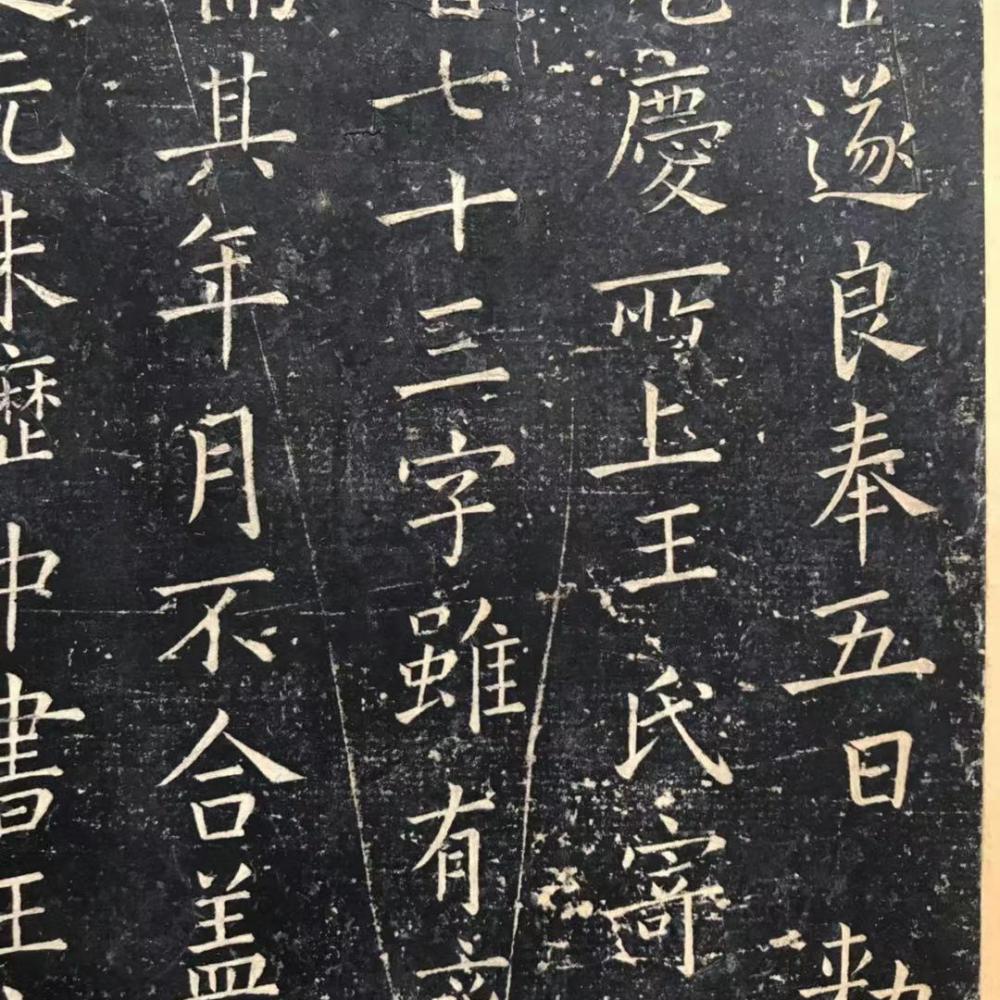 遂良奉五日勅
慶所上王氏寄
七十三字雖有
其年月不合蓋
元殊歷中書王